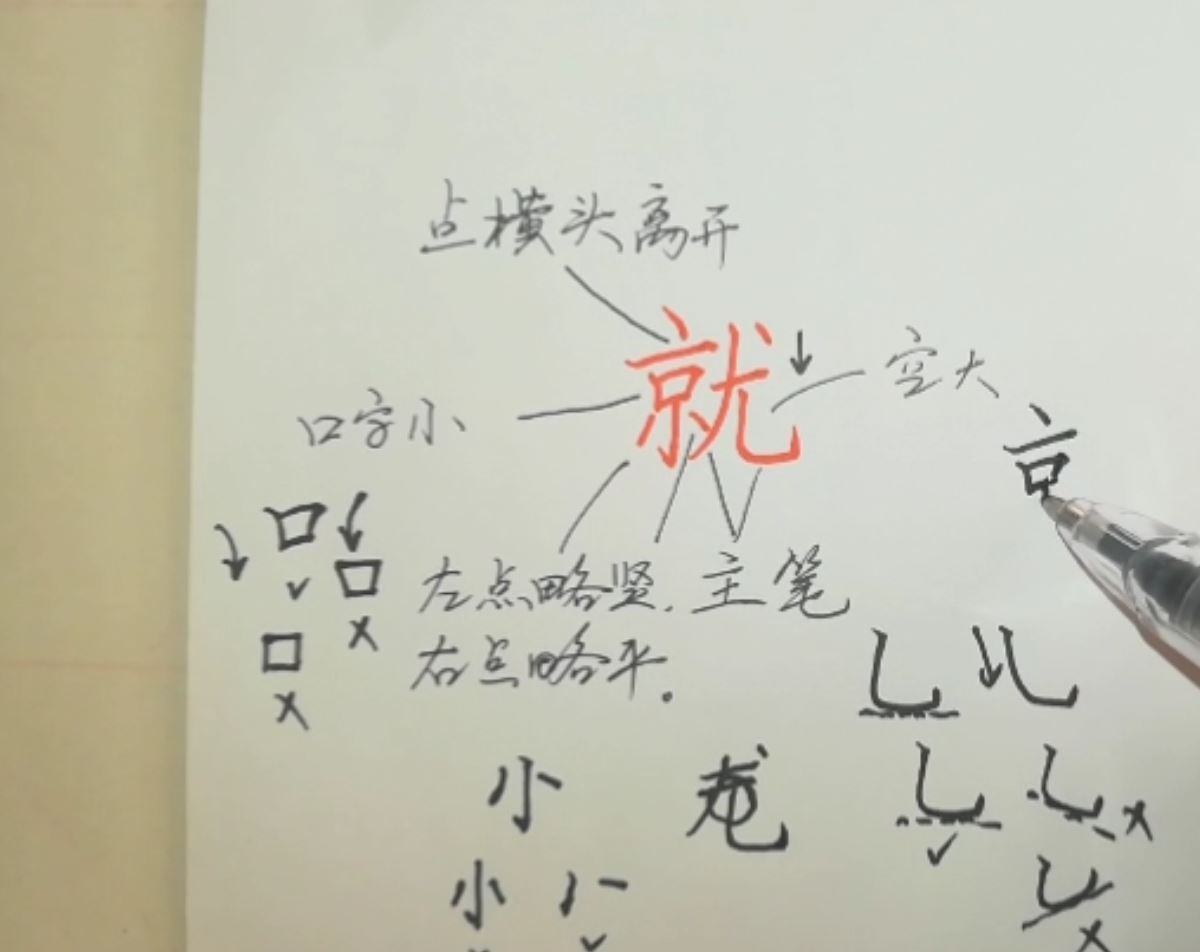 点横头离开
就
空大
口字小
京
左点略竖.主笔
右点略平.
小
小